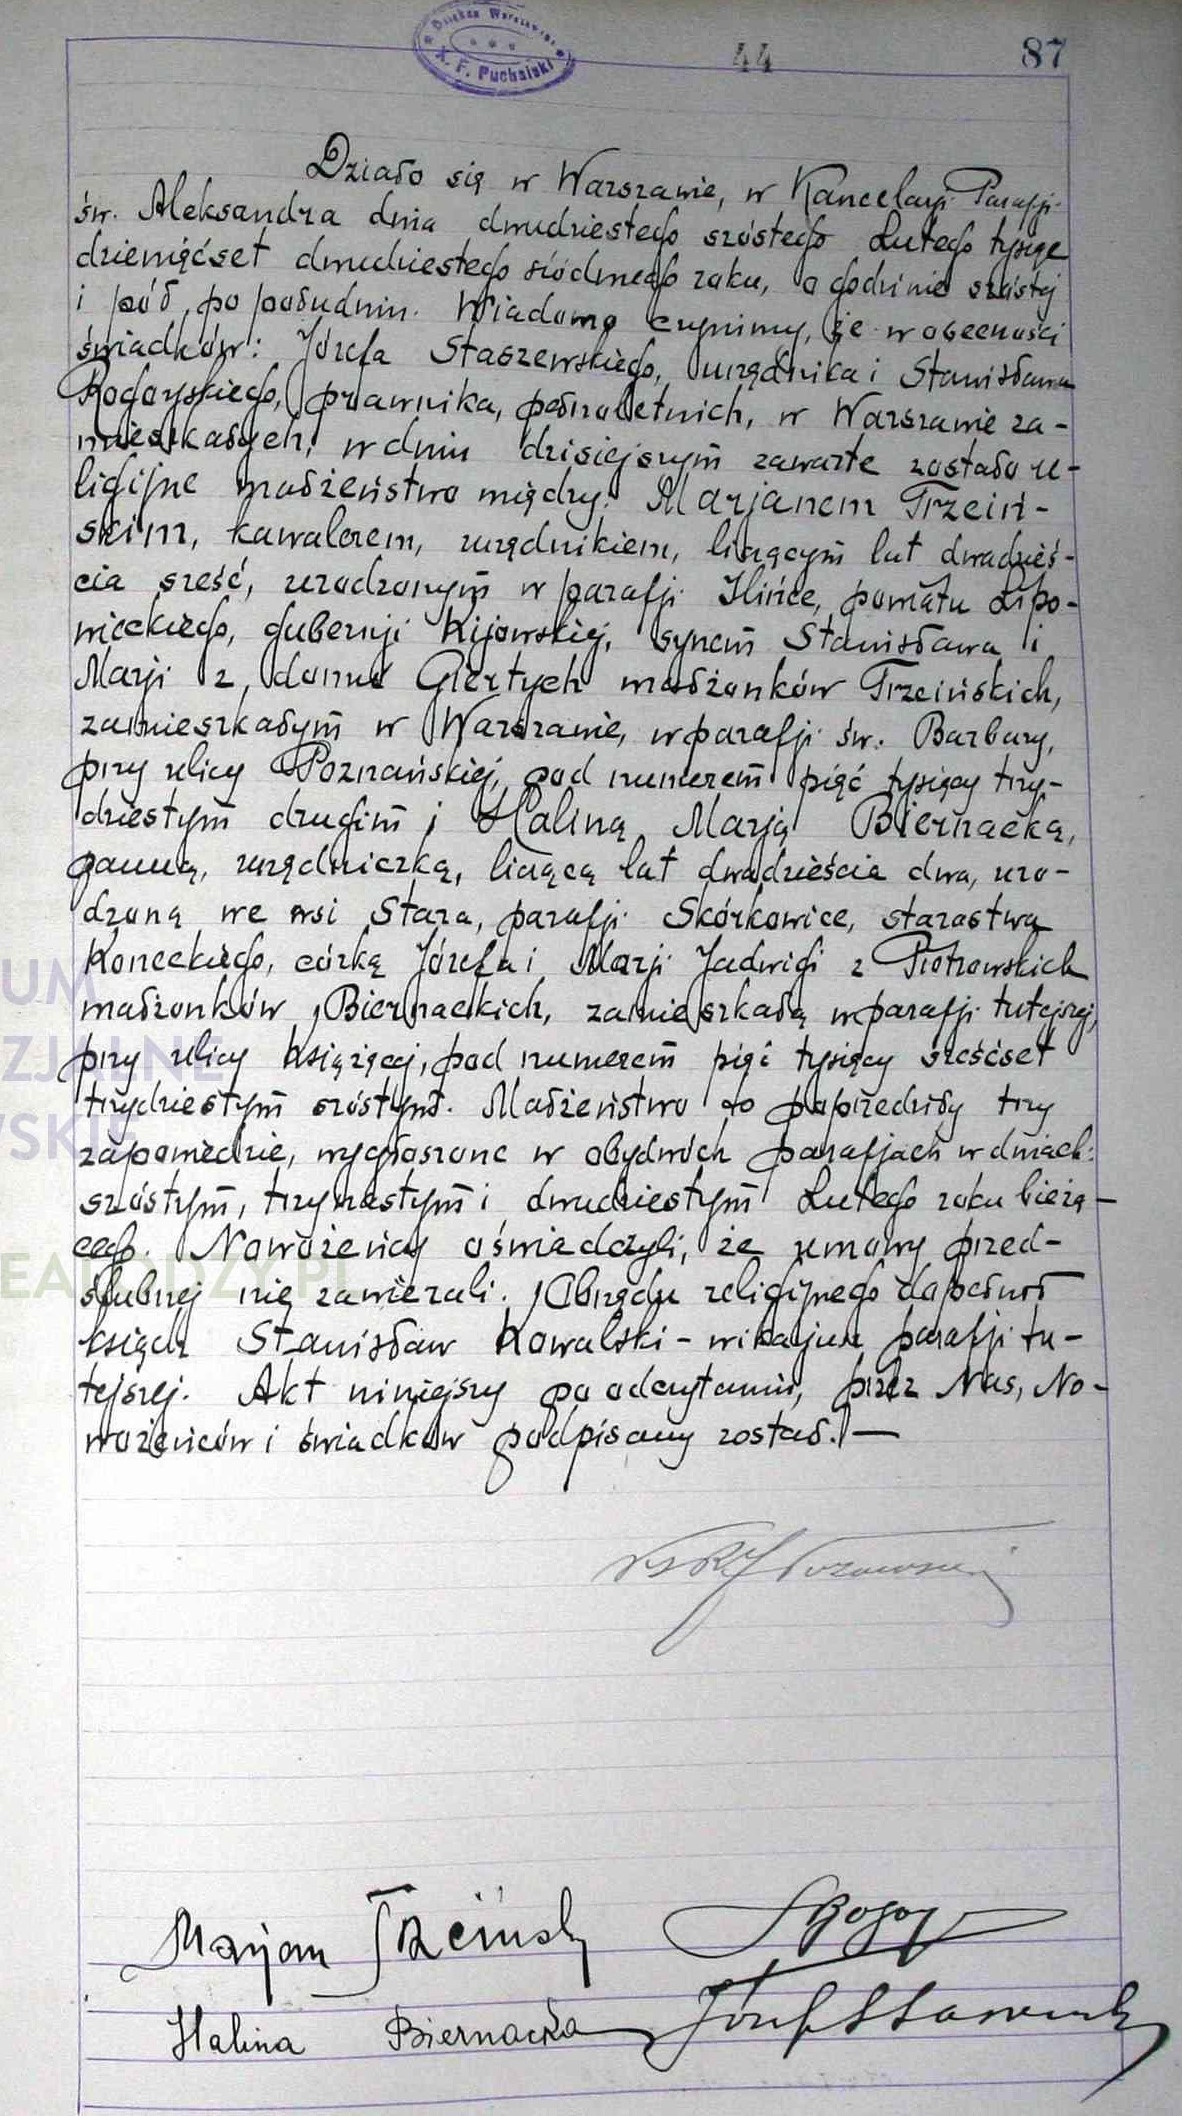 Dziekan Warszawski
X. F. Puchalski
44
87
Działo się w Warszawie, w Kancelarji Parafji
św. Aleksandra dnia dwudziestego szóstego Lutego tysiąc
dziewięćset dwudziestego siódmego roku, o godzinie szóstej
i pół po południu. Wiadomo czynimy, że w obecności
świadków: Józefa Staszewskiego, urzędnika i Stanisława
Rogoyskiego, prawnika, pełnoletnich, w Warszawie za-
mieszkałych, w dniu dzisiejszym zawarte zostało re-
ligijne małżeństwo między: Marjanem Trzciń-
skim, kawalerem, urzędnikiem, liczącym lat dwadzieś-
cia sześć, urodzonym w parafji Ilińce, powiatu Lipo-
wieckiego, gubernji Kijowskiej, synem Stanisława i
Marji z domu Giertych małżonków Trzcińskich,
zamieszkałym w Warszawie, w parafji św. Barbary,
przy ulicy Poznańskiej, pod numerem pięć tysięcy trzy-
dziestym drugim i Haliną Marją Biernacką,
panną, urzędniczką, liczącą lat dwadzieścia dwa, uro-
dzoną we wsi Stara, parafji Skórkowice, starostwa
Koneckiego, córką Józefa i Marji Jadwigi z Piotrowskich
małżonków Biernackich, zamieszkałą w parafji tutejszej,
przy ulicy Książęcej, pod numerem pięć tysięcy sześćset
trzydziestym szóstym. Małżeństwo to poprzedziły trzy
zapowiedzie, wygłoszone w obydwóch parafjach w dniach:
szóstym, trzynastym i dwudziestym Lutego roku bieżą-
cego. Nowożeńcy oświadczyli, że umowy przed-
ślubnej nie zawierali. Obrzędu religijnego dopełnił
ksiądz Stanisław Kowalski - wikarjusz parafji tu-
tejszej. Akt niniejszy po odczytaniu, przez Nas, No-
wożeńców i świadków podpisany został. —
Marjan Trzciński
Halina Biernacka
Józef Staszewski
UM
ZJALNE
WSKIE
EALODZY.PL